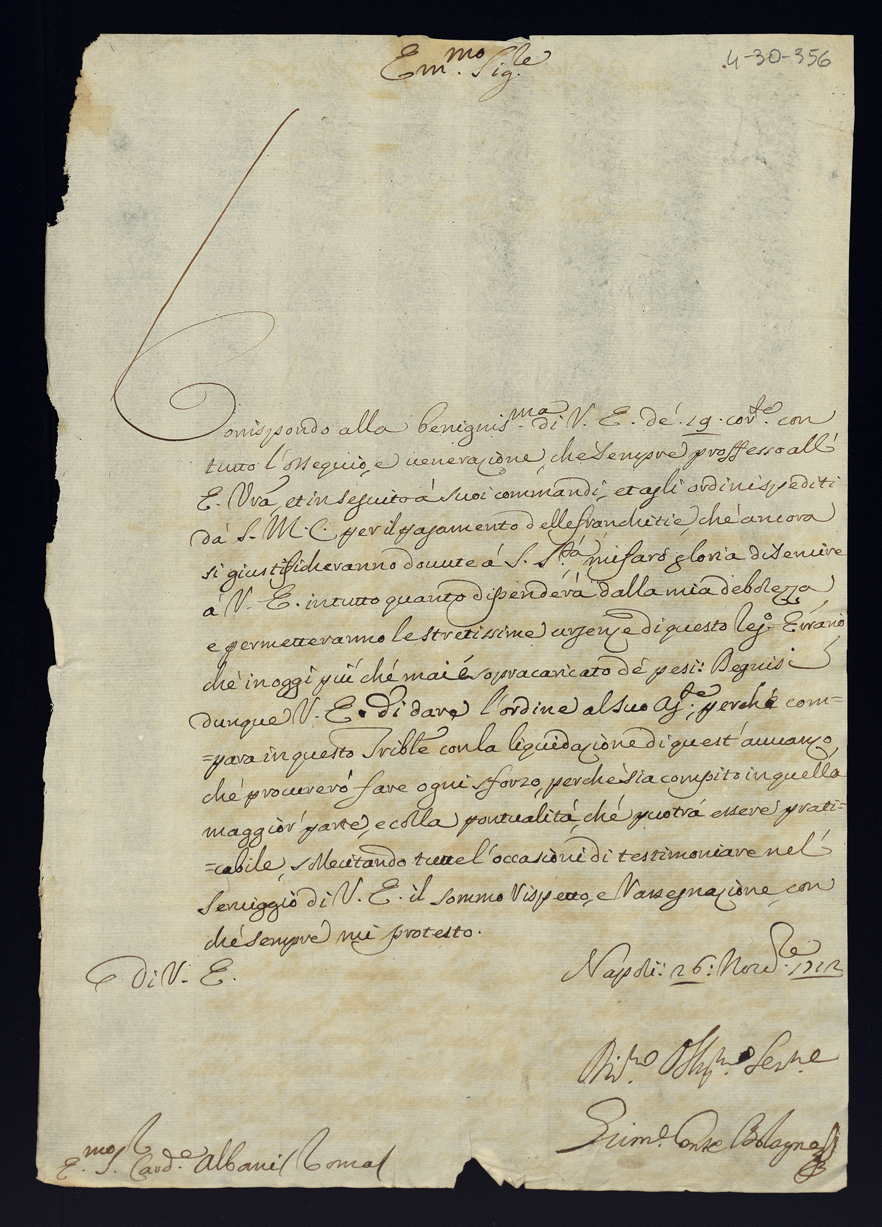 4-30-356
Em.mo Sig.re
Corrispondo alla benignis.ma di V. E. de' 19. cor.te con
tutto l'ossequio, e venerazione, che sempre proffesso all'
E. Vrã, et in seguito á suoi commandi, et agli ordini spediti
dá S. M. C. per il pagamento delle franchitie, ché ancora
si giustificheranno dovute á S. S.tá mi faró gloria di servire
á V. E. in tutto quanto dipenderá dalla mia debolezza
e permetteranno le strettissime urgenze di questo Reg.o Errario
ché in oggi piú ché mai é sopracaricato dé pesi: Regnisi
dunque V. E. di dare l'ordine al suo Ag.te perché com=
=para in questo Trible con la liquidazione di quest'avvanzo,
ché procureró fare ogni sforzo, perché sia compito in quella
maggiór parte, e colla pontualitá, ché puotrá essere prati=
=cabile, sollecitando tutte l'occasioni di testimoniare nel
serviggio di V. E. il sommo rispetto, e rassegnazione, con
ché sempre mi protesto.
Di V. E.
Napoli: 26: Nov.re 1722
Conte Bologna
E.mo S. Card.e Albani Roma